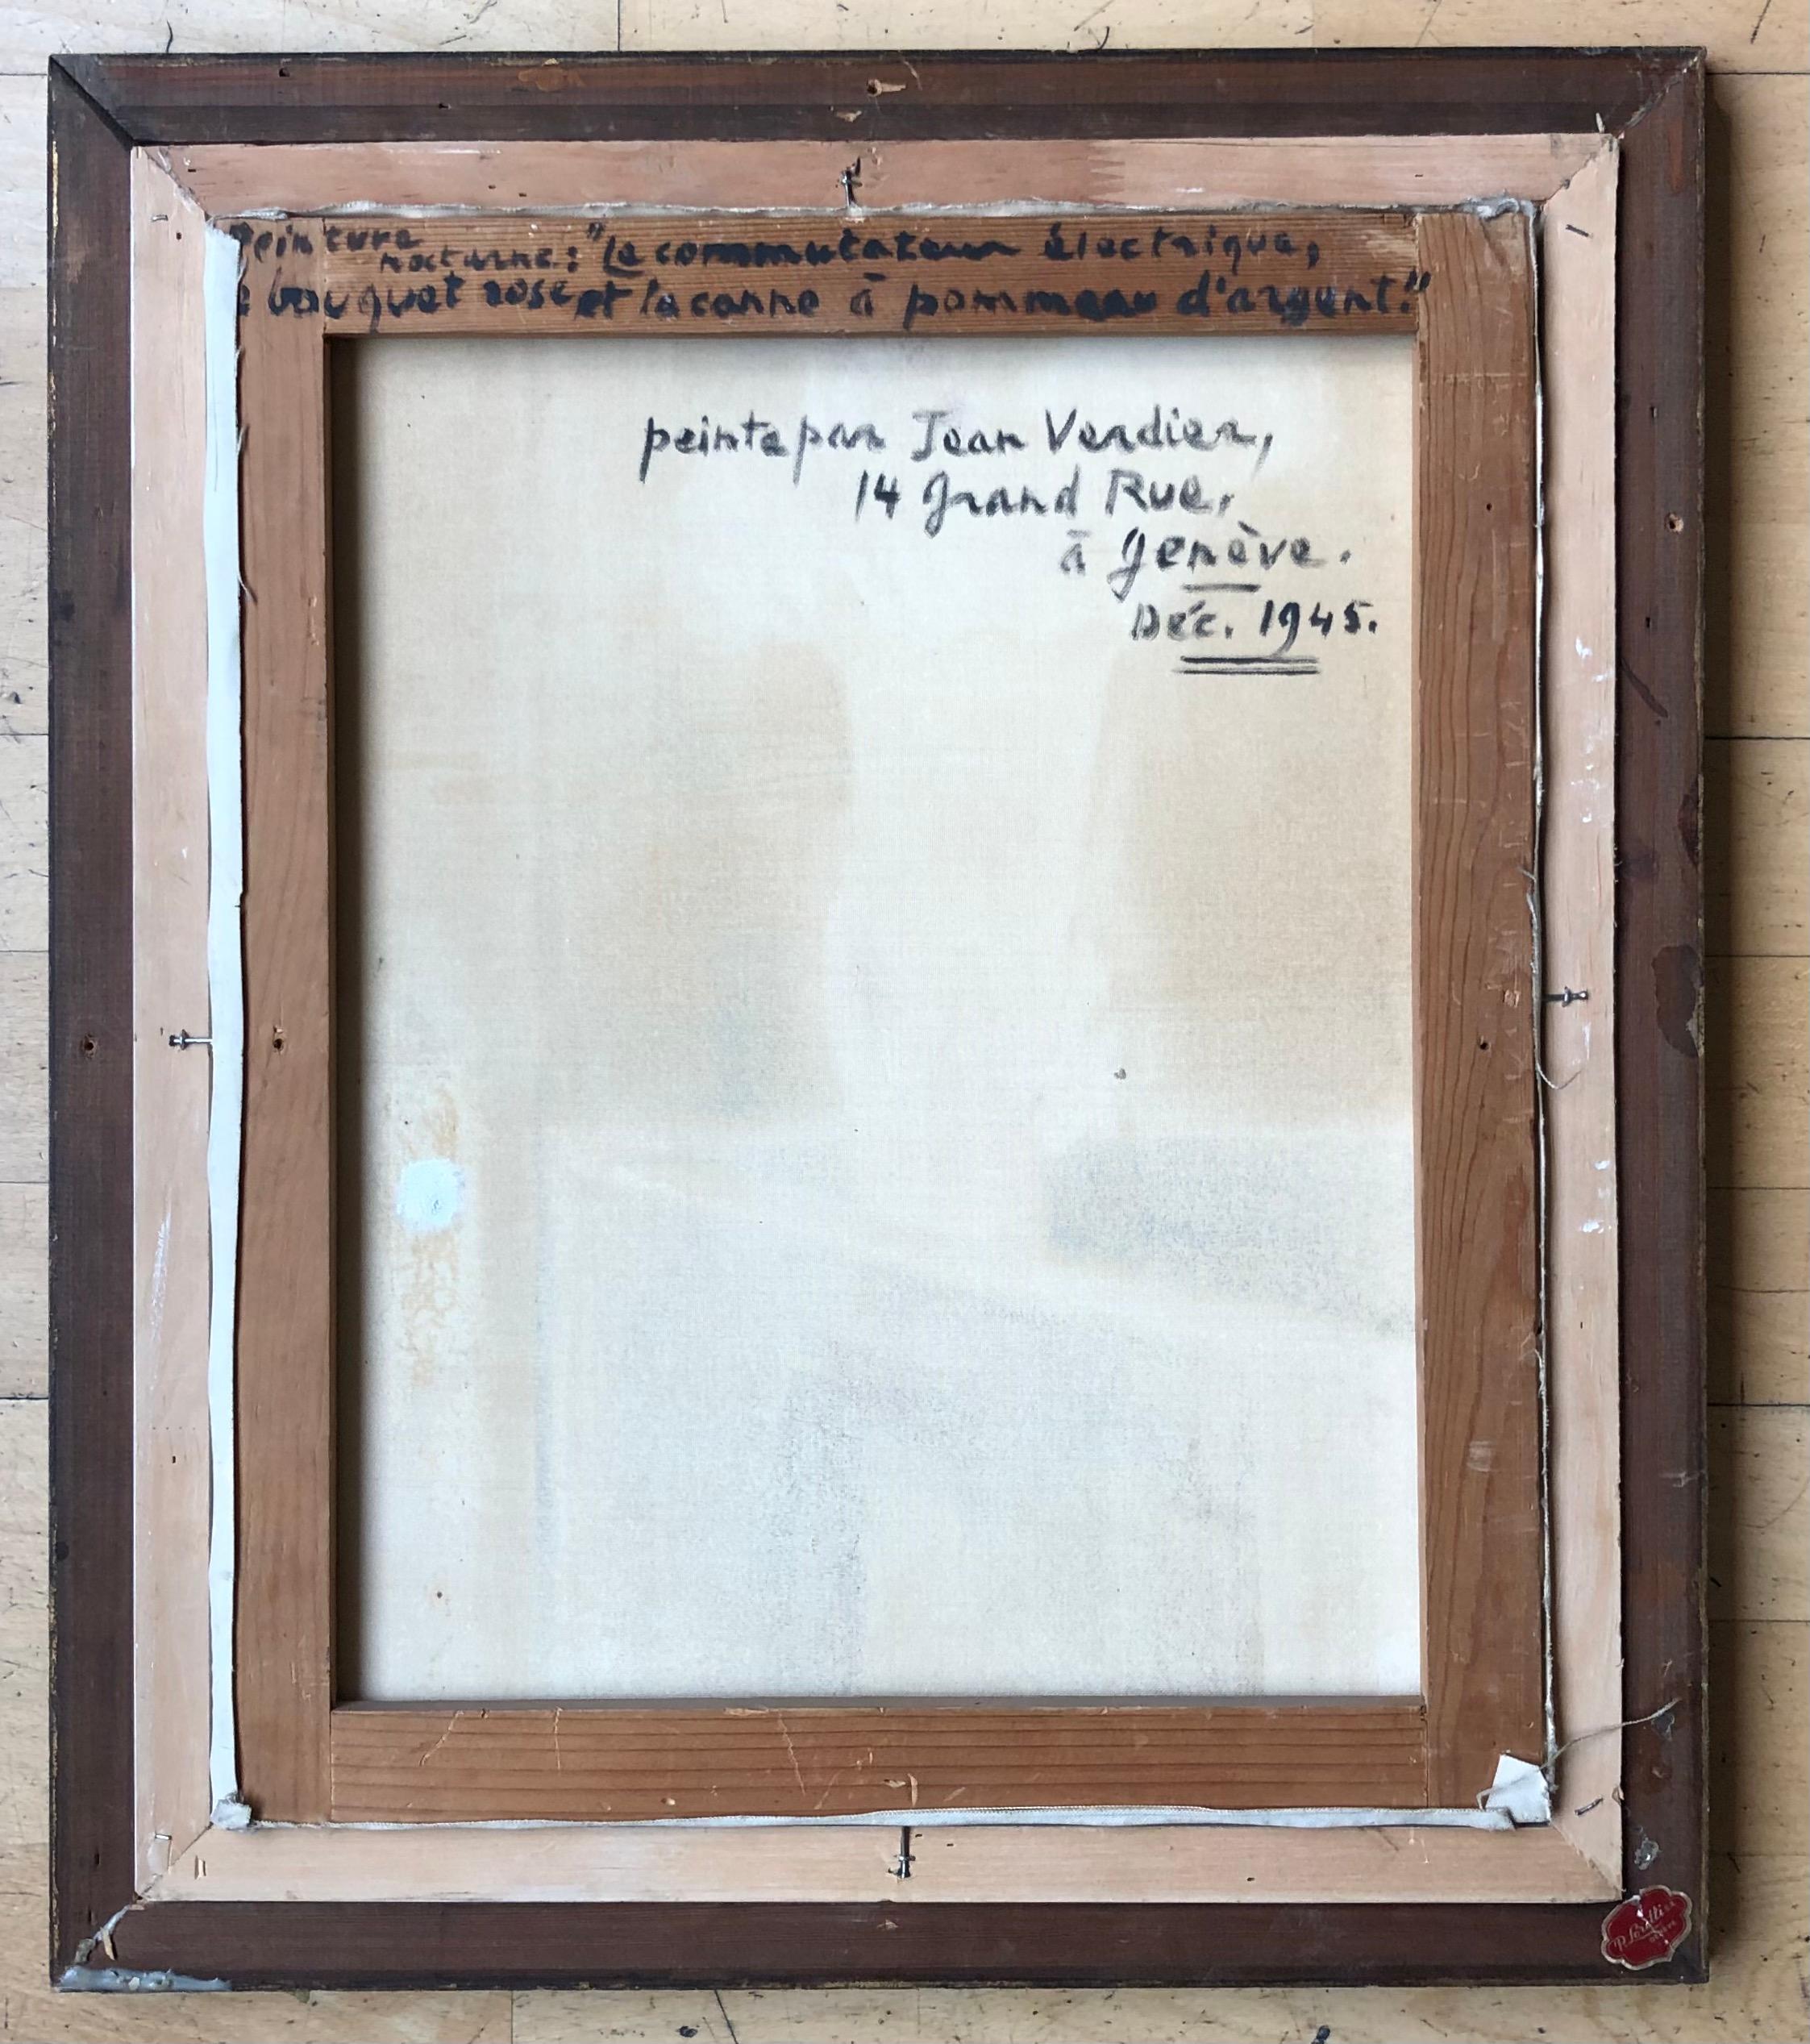 Peinture
nocturne: "Le commutateur électrique,
bouquet rose et la canne à pommeau d'argent."
peinte par Jean Verdier,
14 Grand Rue,
à Genève.
Déc. 1945.